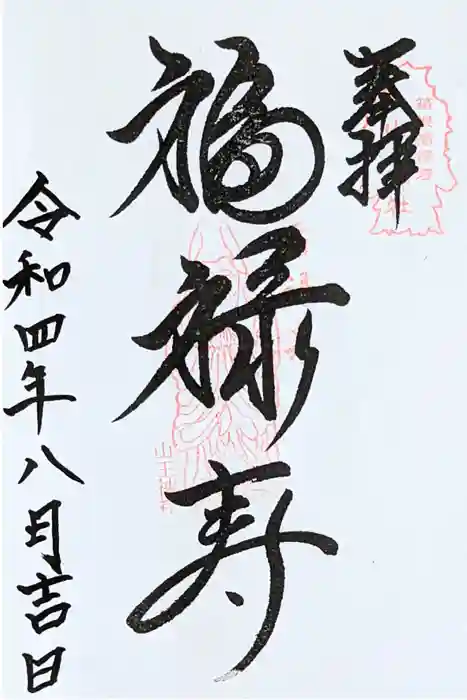 奉拝
福禄寿
山王神社
令和四年八月吉日